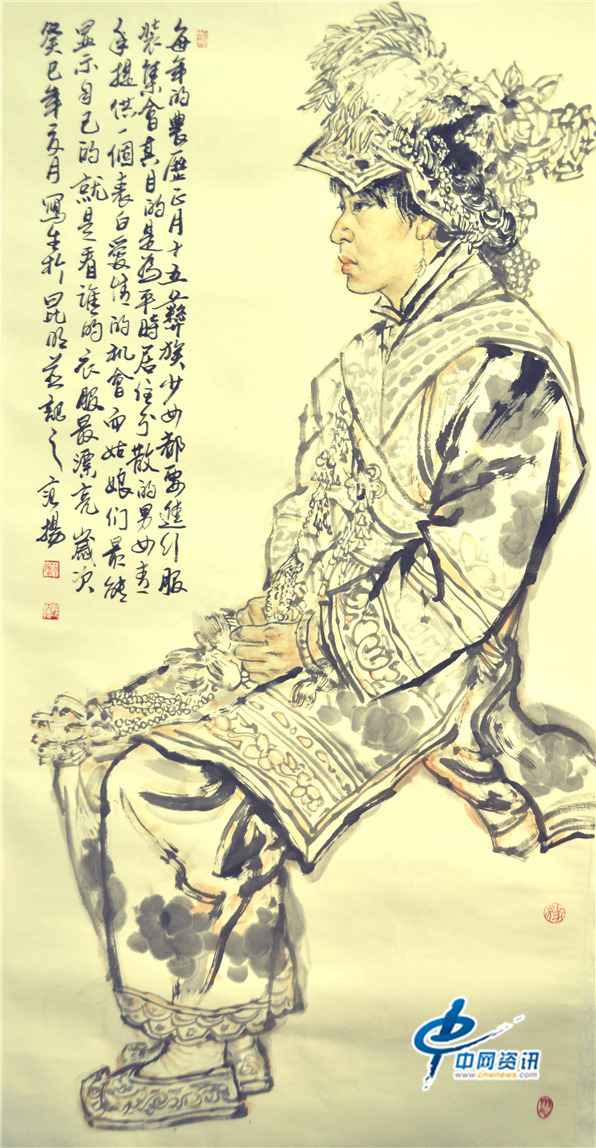 每年的農歷正月十五彝族少女都要進行服
裝集會其目的是為平時居住分散的男女青
年提供一個表白愛情的机會而姑娘们最能
显示自己的就是看誰的衣服最漂亮歲次
癸巳年夏月寫生於昆明並記之范揚
中网资讯
www.cnwnews.com